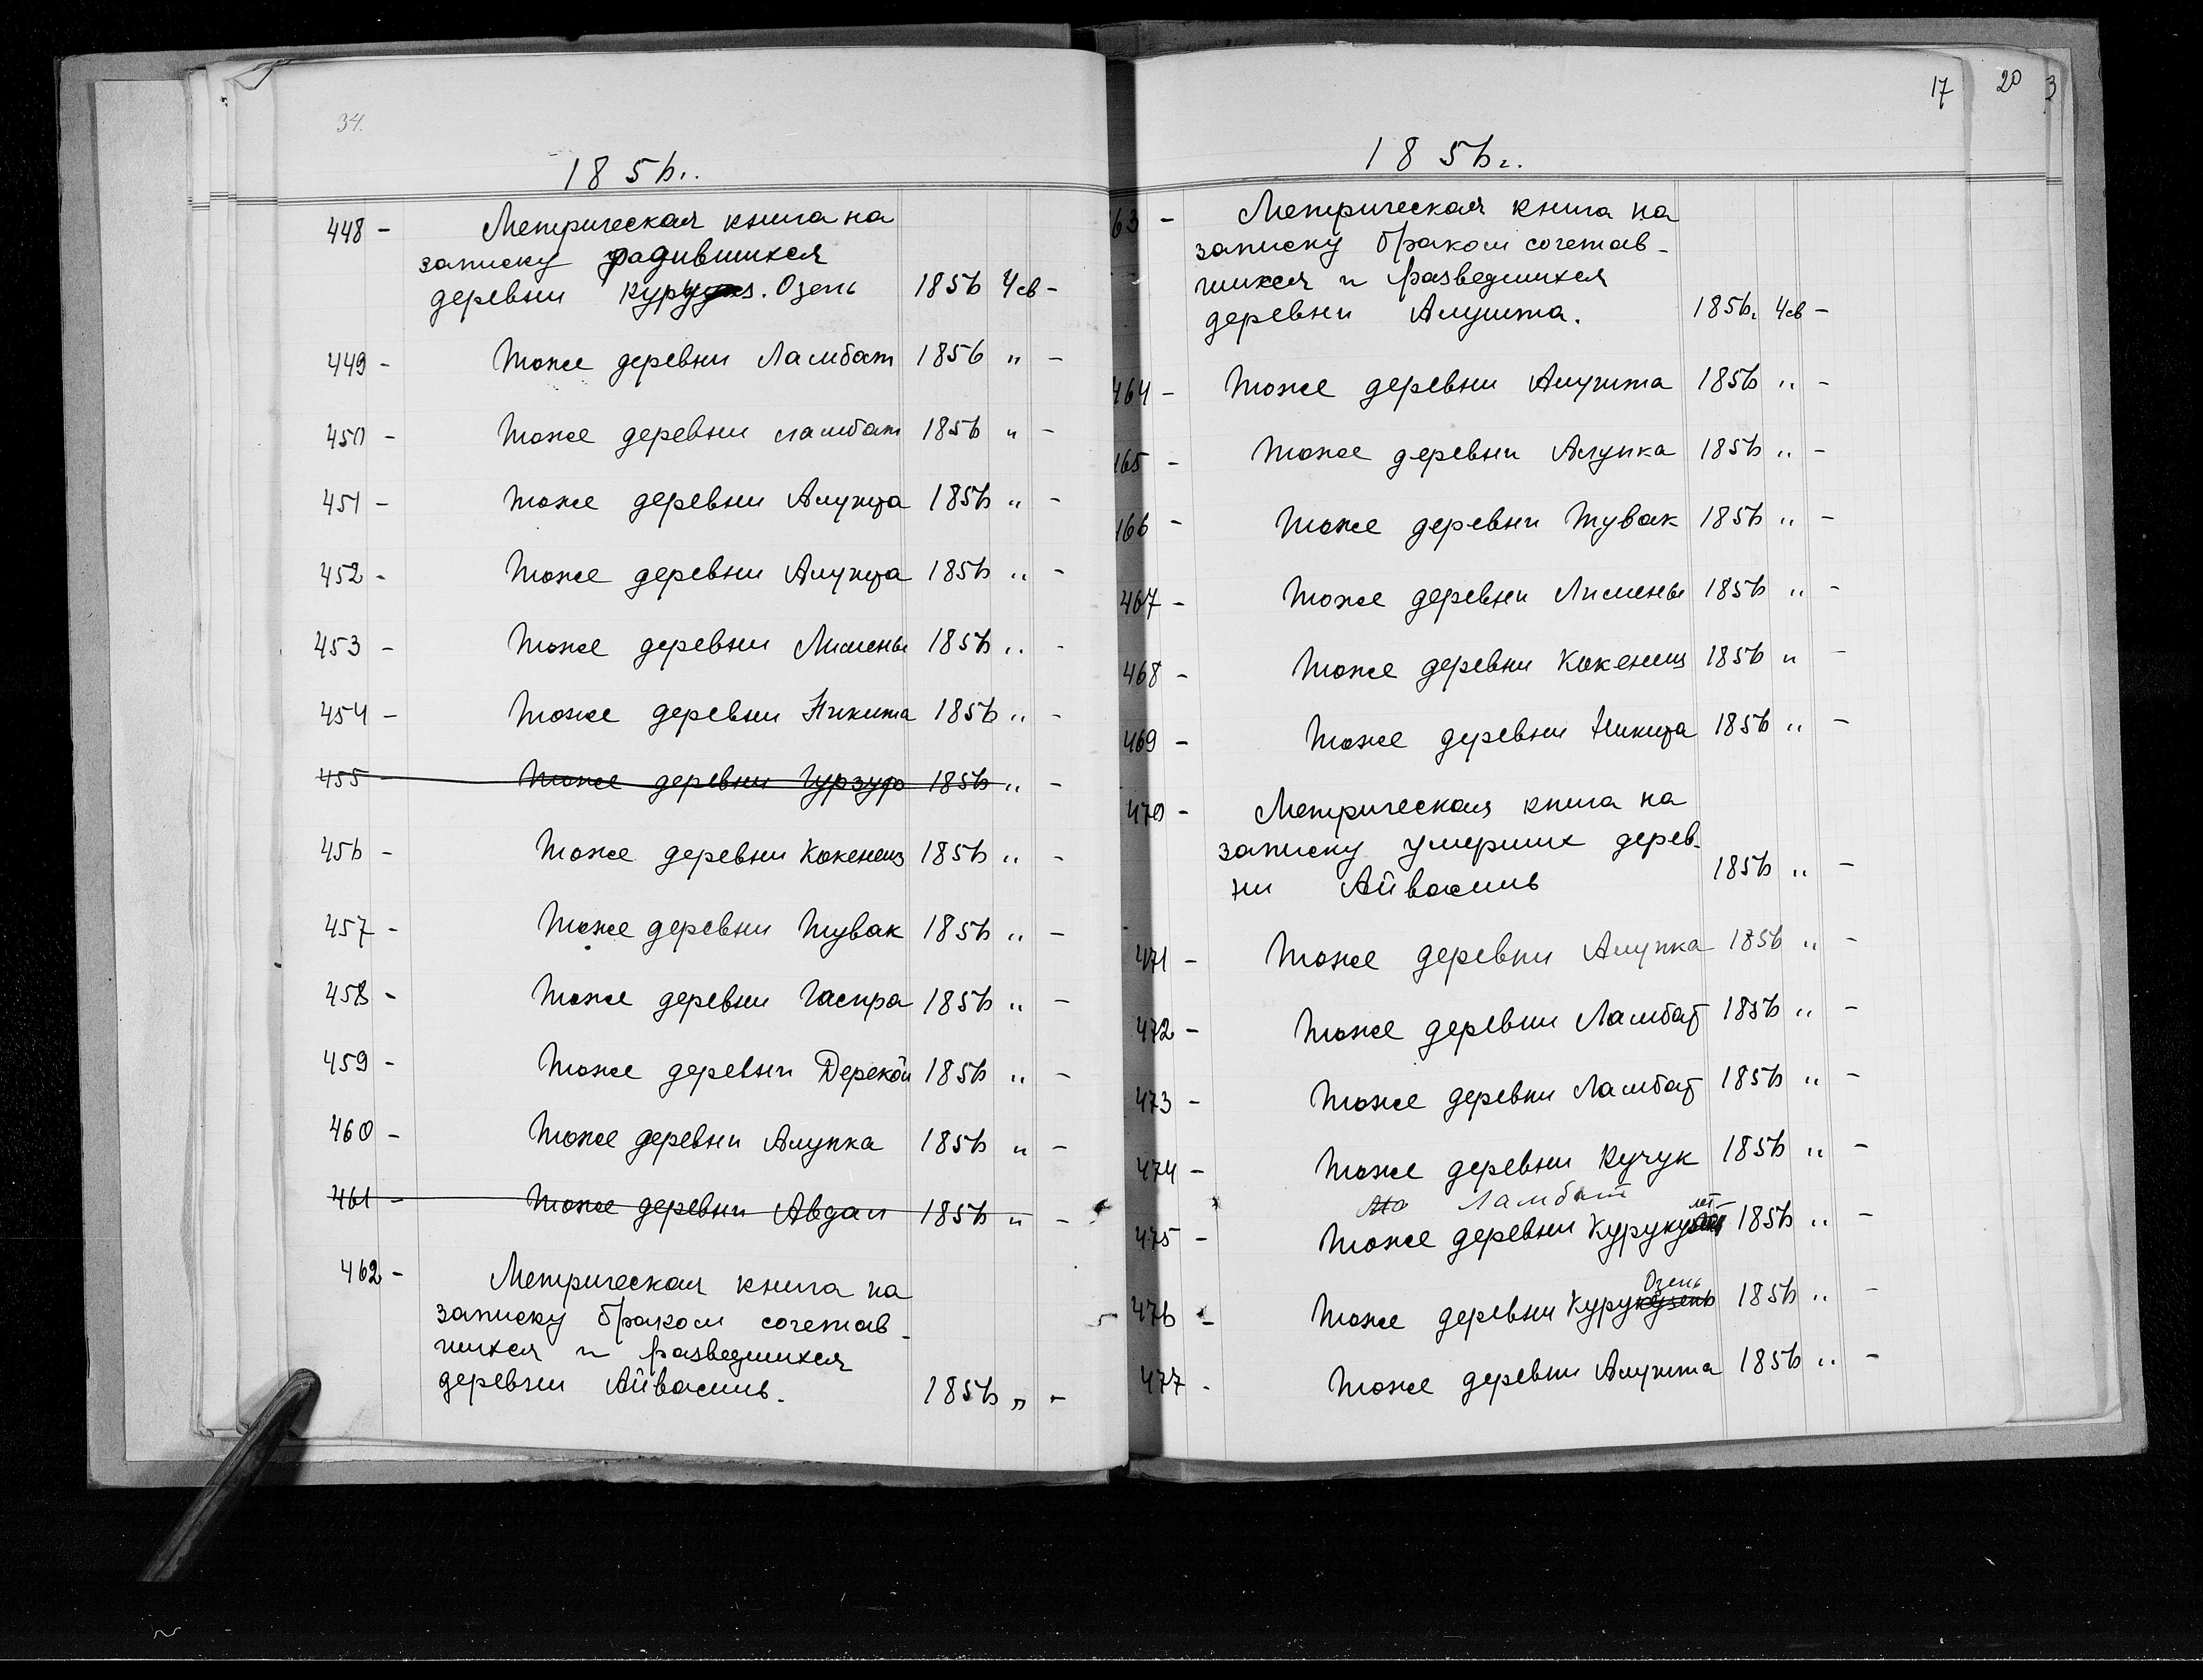 34.
1856г.
448 - Метрическая книга на
записку радившихся
деревни Куру. Озень 1856 4св -
449 - Тоже деревни Ламбат 1856 " -
450 - Тоже деревни Ламбат 1856 " -
451 - Тоже деревни Алушта 1856 " -
452 - Тоже деревни Алушта 1856 " -
453 - Тоже деревни Лимены 1856 " -
454 - Тоже деревни Никита 1856 " -
455 - Тоже деревни Гурзуф 1856 " -
456 - Тоже деревни Кокенеиз 1856 " -
457 - Тоже деревни Тувак 1856 " -
458 - Тоже деревни Гаспра 1856 " -
459 - Тоже деревни Дерекой 1856 " -
460 - Тоже деревни Алупка 1856 " -
461 - Тоже деревни Авдаи 1856 " -
462 - Метрическая книга на
записку браком сочетав-
шихся и разведшихся
деревни Айвасиль. 1856 " -
17 20 3
1856г.
63 - Метрическая книга на
записку браком сочетав-
шихся и разведшихся
деревни Алушта. 1856г 4св -
464 - Тоже деревни Алушта 1856 " -
465 - Тоже деревни Алупка 1856 " -
466 - Тоже деревни Тувак 1856 " -
467 - Тоже деревни Лимены 1856 " -
468 - Тоже деревни Кокенеиз 1856 " -
469 - Тоже деревни Никита 1856 " -
470 - Метрическая книга на
записку умерших дерев-
ни Айвасиль 1856 " -
471 - Тоже деревни Алупка 1856 " -
472 - Тоже деревни Ламбат 1856 " -
473 - Тоже деревни Ламбат 1856 " -
474 - Тоже деревни Кучук 1856 " -
Ламбат
475 - Тоже деревни Куруку 1856 " -
Озень
476 - Тоже деревни Курукузень 1856 " -
477 - Тоже деревни Алушта 1856 " -